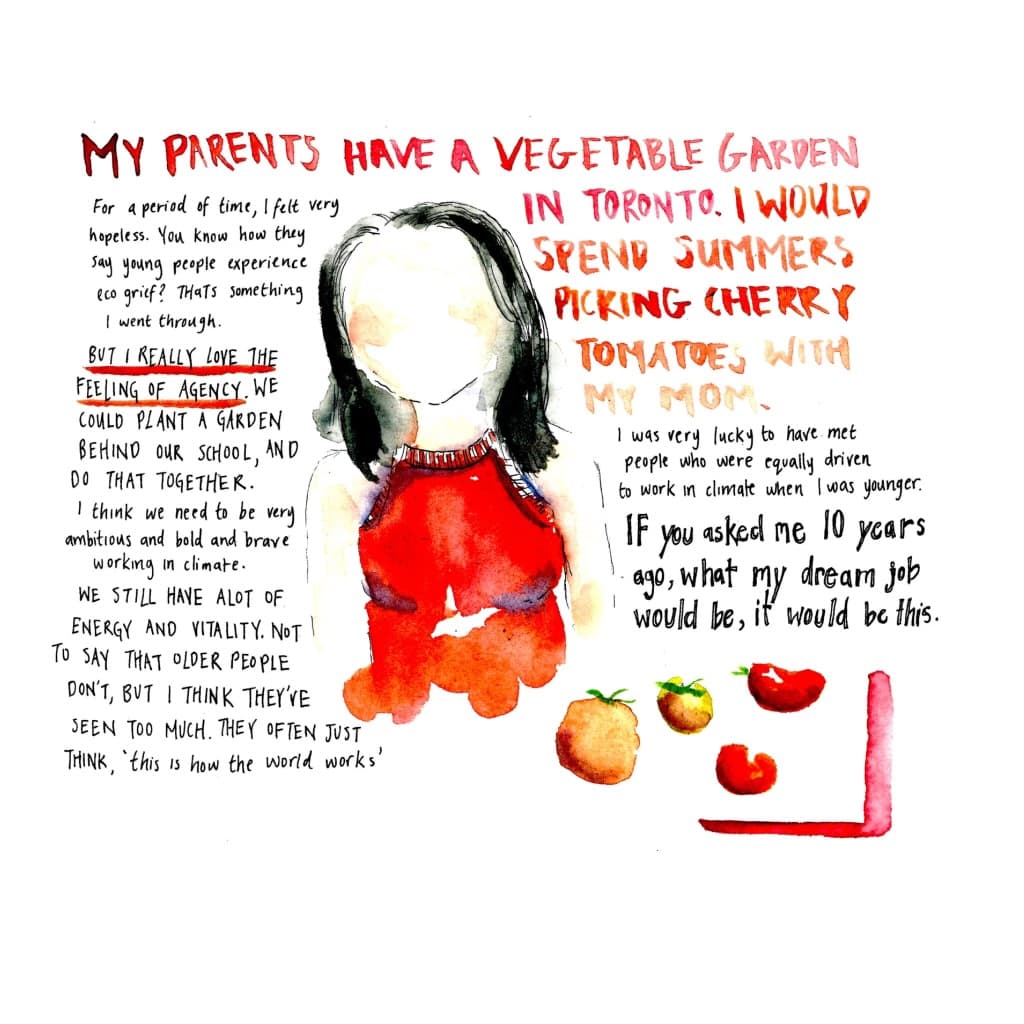 MY PARENTS HAVE A VEGETABLE GARDEN
IN TORONTO. I WOULD
SPEND SUMMERS
PICKING CHERRY
TOMATOES WITH
MY MOM.
For a period of time, I felt very
hopeless. You know how they
say young people experience
eco grief? THaTs something
I went through.
BUT I REALLY LOVE THE
FEELING OF AGENCY. WE
COULD PLANT A GARDEN
BEHIND OUR SCHOOL, AND
DO THAT TOGETHER.
I think we need to be very
ambitious and bold and brave
working in climate.
WE STILL HAVE ALOT OF
ENERGY AND VITALITY. NOT
TO SAY THAT OLDER PEOPLE
DON'T, BUT I THINK THEY'VE
SEEN TOO MUCH. THEY OFTEN JUST
THINK, 'this is how the world works'
I was very lucky to have met
people who were equally driven
to work in climate when I was younger.
IF you asked me 10 years
ago, what my dream job
would be, it would be this.